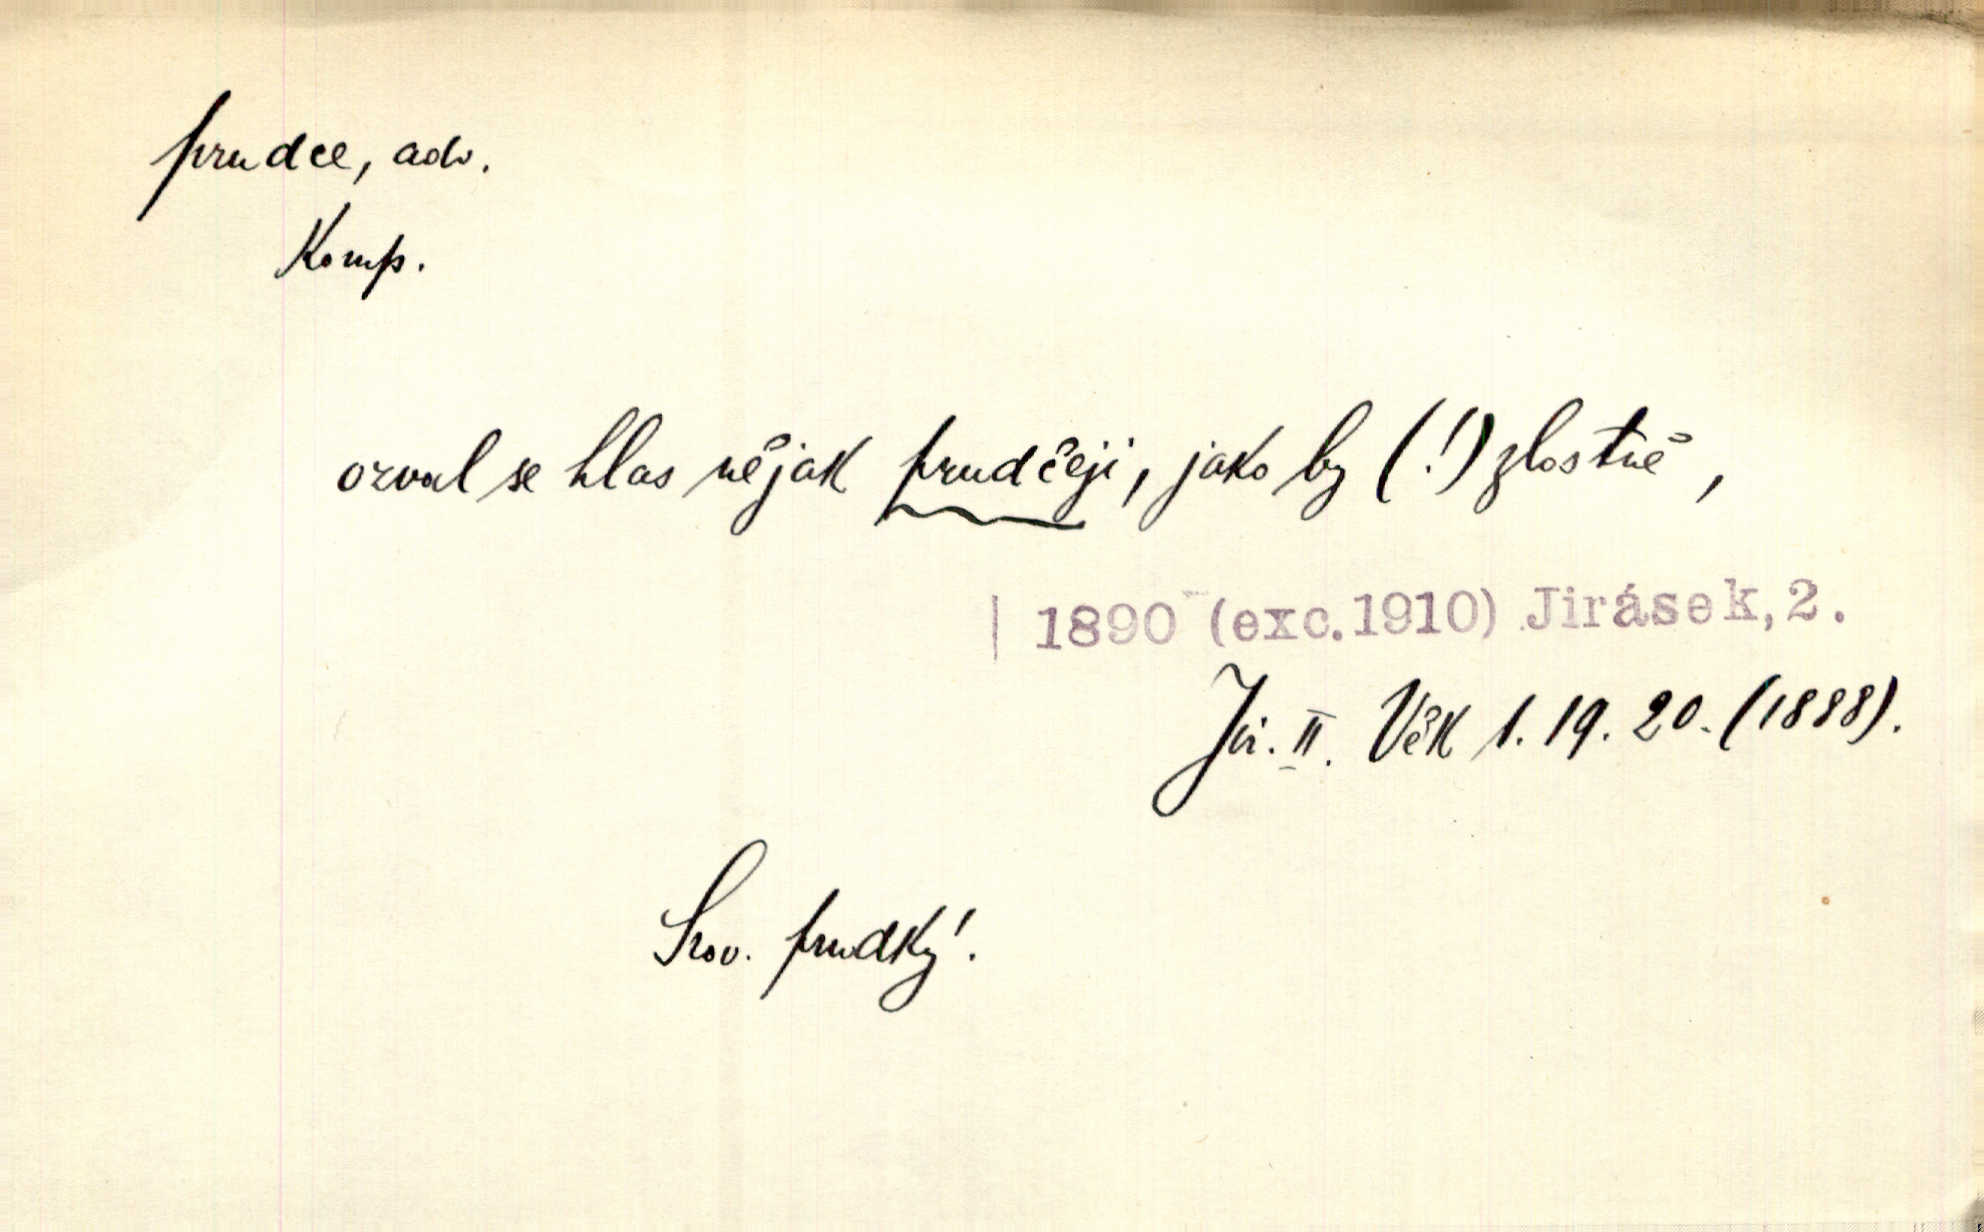 prudce, adv.
Komp.
orval se hlas nějak prudčeji, jako by (!) zlostně,
| 1890 (exc.1910) Jirásek, 2.
Jir. II. Věk 1. 19. 20. (1888).
Srov. prudký.